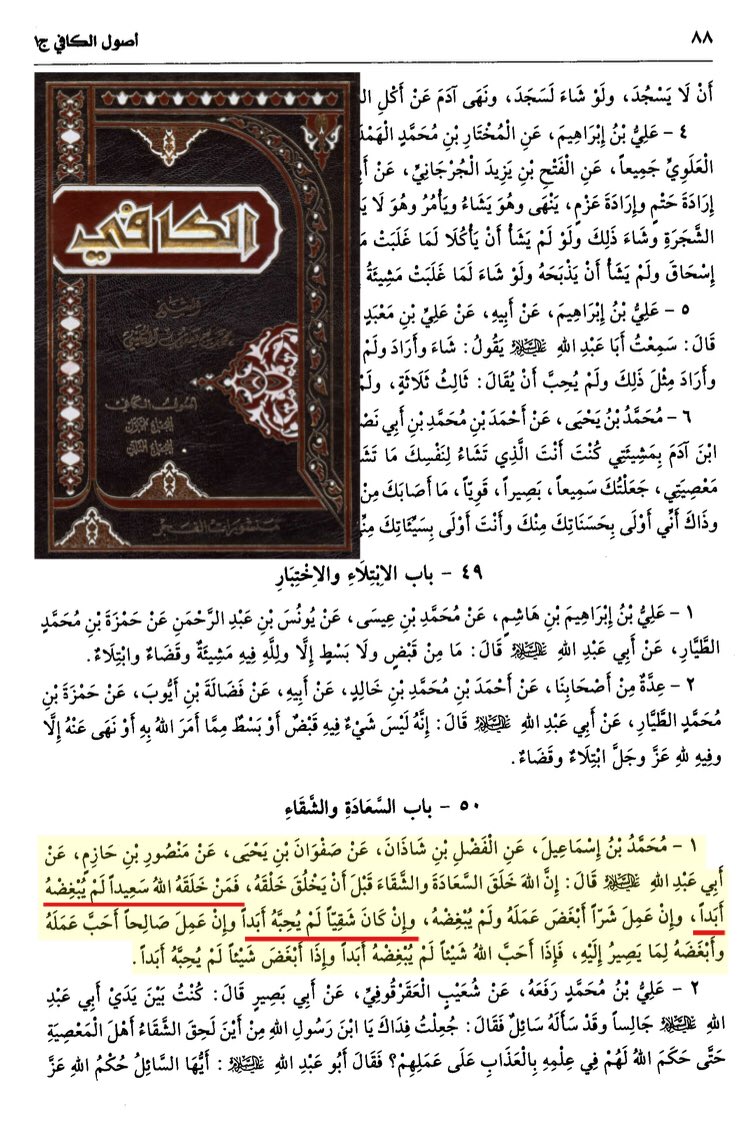 ٨٨
أصول الكافي ج١
أَنْ لَا يَسْجُدَ، ولَوْ شَاءَ لَسَجَدَ، ونَهَى آدَمَ عَنْ أَكْلِ
٤ - عَلِيُّ بْنُ إِبْرَاهِيمَ، عَنِ الْمُخْتَارِ بْنِ مُحَمَّدٍ
الْعَلَوِيِّ جَمِيعاً، عَنِ الْفَتْحِ بْنِ يَزِيدَ الْجُرْجَانِيِّ، عَنْ
إِرَادَةَ حَتْمٍ وإِرَادَةَ عَزْمٍ، يَنْهَى وهُوَ يَشَاءُ ويَأْمُرُ وهُوَ لَا
الشَّجَرَةِ وشَاءَ ذَلِكَ ولَوْ لَمْ يَشَأْ أَنْ يَأْكُلَا لَمَا غَلَبَتْ
إِسْحَاقَ ولَمْ يَشَأْ أَنْ يَذْبَحَهُ ولَوْ شَاءَ لَمَا غَلَبَتْ مَشِيئَةُ
٥ - عَلِيُّ بْنُ إِبْرَاهِيمَ، عَنْ أَبِيهِ، عَنْ عَلِيِّ بْنِ مَعْبَدٍ
قَالَ: سَمِعْتُ أَبَا عَبْدِ اللهِ عَلَيْهِ السَّلَام يَقُولُ: شَاءَ وأَرَادَ ولَمْ
وأَرَادَ مِثْلَ ذَلِكَ ولَمْ يُحِبَّ أَنْ يُقَالَ: ثَالِثُ ثَلَاثَةٍ، ولَمْ
٦ - مُحَمَّدُ بْنُ يَحْيَى، عَنْ أَحْمَدَ بْنِ مُحَمَّدِ بْنِ أَبِي
ابْنَ آدَمَ بِمَشِيئَتِي كُنْتَ أَنْتَ الَّذِي تَشَاءُ لِنَفْسِكَ مَا
مَعْصِيَتِي، جَعَلْتُكَ سَمِيعاً، بَصِيراً، قَوِيّاً، مَا أَصَابَكَ مِنْ
وذَاكَ أَنِّي أَوْلَى بِحَسَنَاتِكَ مِنْكَ وأَنْتَ أَوْلَى بِسَيِّئَاتِكَ
الكافي
أصول الكافي
٤٩ - باب الِابْتِلَاءِ والِاخْتِبَارِ
١ - عَلِيُّ بْنُ إِبْرَاهِيمَ بْنِ هَاشِمٍ، عَنْ مُحَمَّدِ بْنِ عِيسَى، عَنْ يُونُسَ بْنِ عَبْدِ الرَّحْمَنِ عَنْ حَمْزَةَ بْنِ مُحَمَّدٍ
الطَّيَّارِ، عَنْ أَبِي عَبْدِ اللهِ عَلَيْهِ السَّلَام قَالَ: مَا مِنْ قَبْضٍ ولَا بَسْطٍ إِلَّا ولِلَّهِ فِيهِ مَشِيئَةٌ وقَضَاءٌ وابْتِلَاءٌ.
٢ - عِدَّةٌ مِنْ أَصْحَابِنَا، عَنْ أَحْمَدَ بْنِ مُحَمَّدِ بْنِ خَالِدٍ، عَنْ أَبِيهِ، عَنْ فَضَالَةَ بْنِ أَيُّوبَ، عَنْ حَمْزَةَ بْنِ
مُحَمَّدٍ الطَّيَّارِ، عَنْ أَبِي عَبْدِ اللهِ عَلَيْهِ السَّلَام قَالَ: إِنَّهُ لَيْسَ شَيْءٌ فِيهِ قَبْضٌ أَوْ بَسْطٌ مِمَّا أَمَرَ اللهُ بِهِ أَوْ نَهَى عَنْهُ إِلَّا
وفِيهِ لِلهِ عَزَّ وجَلَّ ابْتِلَاءٌ وقَضَاءٌ.
٥٠ - باب السَّعَادَةِ والشَّقَاءِ
١ - مُحَمَّدُ بْنُ إِسْمَاعِيلَ، عَنِ الْفَضْلِ بْنِ شَاذَانَ، عَنْ صَفْوَانَ بْنِ يَحْيَى، عَنْ مَنْصُورِ بْنِ حَازِمٍ، عَنْ
أَبِي عَبْدِ اللهِ عَلَيْهِ السَّلَام قَالَ: إِنَّ اللهَ خَلَقَ السَّعَادَةَ والشَّقَاءَ قَبْلَ أَنْ يَخْلُقَ خَلْقَهُ، فَمَنْ خَلَقَهُ اللهُ سَعِيداً لَمْ يُبْغِضْهُ
أَبَداً، وإِنْ عَمِلَ شَرّاً أَبْغَضَ عَمَلَهُ ولَمْ يُبْغِضْهُ، وإِنْ كَانَ شَقِيّاً لَمْ يُحِبَّهُ أَبَداً وإِنْ عَمِلَ صَالِحاً أَحَبَّ عَمَلَهُ
وأَبْغَضَهُ لِمَا يَصِيرُ إِلَيْهِ، فَإِذَا أَحَبَّ اللهُ شَيْئاً لَمْ يُبْغِضْهُ أَبَداً وإِذَا أَبْغَضَ شَيْئاً لَمْ يُحِبَّهُ أَبَداً.
٢ - عَلِيُّ بْنُ مُحَمَّدٍ رَفَعَهُ، عَنْ شُعَيْبٍ الْعَقَرْقُوفِيِّ، عَنْ أَبِي بَصِيرٍ قَالَ: كُنْتُ بَيْنَ يَدَيْ أَبِي عَبْدِ
اللهِ عَلَيْهِ السَّلَام جَالِساً وقَدْ سَأَلَهُ سَائِلٌ فَقَالَ: جُعِلْتُ فِدَاكَ يَا ابْنَ رَسُولِ اللهِ مِنْ أَيْنَ لَحِقَ الشَّقَاءُ أَهْلَ الْمَعْصِيَةِ
حَتَّى حَكَمَ اللهُ لَهُمْ فِي عِلْمِهِ بِالْعَذَابِ عَلَى عَمَلِهِمْ؟ فَقَالَ أَبُو عَبْدِ اللهِ عَلَيْهِ السَّلَام: أَيُّهَا السَّائِلُ حُكْمُ اللهِ عَزَّ